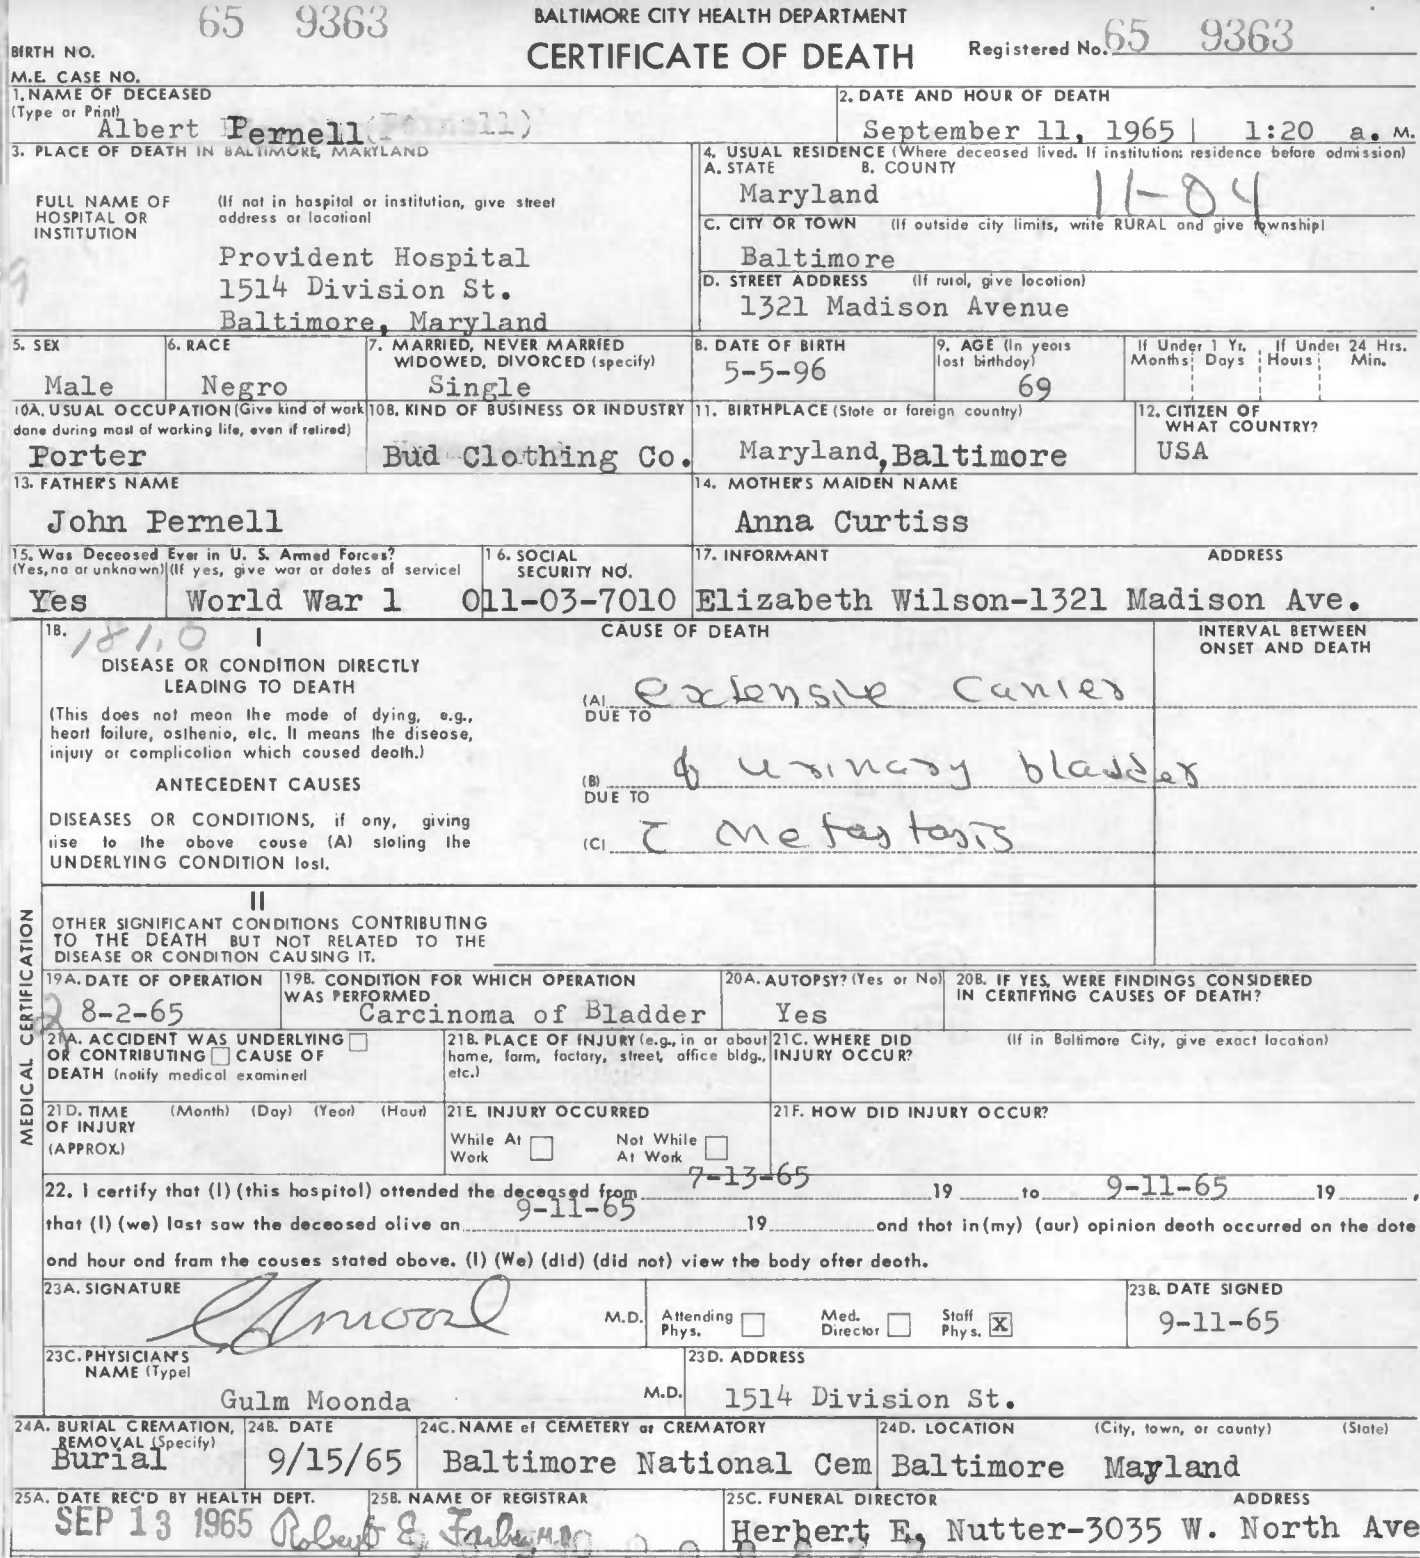 65 9363
BALTIMORE CITY HEALTH DEPARTMENT
BIRTH NO.
CERTIFICATE OF DEATH
Registered No. 65 9363
M.E. CASE NO.
1. NAME OF DECEASED
(Type or Print)
Albert Pernell
2. DATE AND HOUR OF DEATH
September 11, 1965 | 1:20 a. M.
3. PLACE OF DEATH IN BALTIMORE, MARYLAND
FULL NAME OF HOSPITAL OR INSTITUTION
(If not in hospital or institution, give street address or location)
Provident Hospital
1514 Division St.
Baltimore, Maryland
4. USUAL RESIDENCE (Where deceased lived. If institution: residence before admission)
A. STATE B. COUNTY
Maryland 11-04
C. CITY OR TOWN (If outside city limits, write RURAL and give township)
Baltimore
D. STREET ADDRESS (If rural, give location)
1321 Madison Avenue
5. SEX
Male
6. RACE
Negro
7. MARRIED, NEVER MARRIED
WIDOWED, DIVORCED (specify)
Single
8. DATE OF BIRTH
5-5-96
9. AGE (In years
last birthday)
69
If Under 1 Yr.
Months Days
If Under 24 Hrs.
Hours Min.
10A. USUAL OCCUPATION (Give kind of work
done during most of working life, even if retired)
Porter
10B. KIND OF BUSINESS OR INDUSTRY
Bud Clothing Co.
11. BIRTHPLACE (State or foreign country)
Maryland, Baltimore
12. CITIZEN OF
WHAT COUNTRY?
USA
13. FATHER'S NAME
John Pernell
14. MOTHER'S MAIDEN NAME
Anna Curtiss
15. Was Deceased Ever in U. S. Armed Forces?
(Yes, no or unknown) (If yes, give war or dates of service)
Yes World War 1
16. SOCIAL
SECURITY NO.
011-03-7010
17. INFORMANT ADDRESS
Elizabeth Wilson-1321 Madison Ave.
18. 181.0 I
DISEASE OR CONDITION DIRECTLY
LEADING TO DEATH
(This does not mean the mode of dying, e.g.,
heart failure, asthenia, etc. It means the disease,
injury or complication which caused death.)
ANTECEDENT CAUSES
DISEASES OR CONDITIONS, if any, giving
rise to the above cause (A) stating the
UNDERLYING CONDITION last.
CAUSE OF DEATH
INTERVAL BETWEEN
ONSET AND DEATH
(A) extensive
DUE TO
(B) of urinary bladder
DUE TO
(C) c̄ metastasis
II
OTHER SIGNIFICANT CONDITIONS CONTRIBUTING
TO THE DEATH BUT NOT RELATED TO THE
DISEASE OR CONDITION CAUSING IT.
MEDICAL CERTIFICATION
19A. DATE OF OPERATION
8-2-65
19B. CONDITION FOR WHICH OPERATION
WAS PERFORMED
Carcinoma of Bladder
20A. AUTOPSY? (Yes or No)
Yes
20B. IF YES, WERE FINDINGS CONSIDERED
IN CERTIFYING CAUSES OF DEATH?
21A. ACCIDENT WAS UNDERLYING
OR CONTRIBUTING CAUSE OF
DEATH (notify medical examiner)
21B. PLACE OF INJURY (e.g., in or about
home, farm, factory, street, office bldg.,
etc.)
21C. WHERE DID
INJURY OCCUR?
(If in Baltimore City, give exact location)
21D. TIME
OF INJURY
(APPROX.)
(Month) (Day) (Year) (Hour)
21E. INJURY OCCURRED
While At
Work
Not While
At Work
21F. HOW DID INJURY OCCUR?
22. I certify that (I) (this hospital) attended the deceased from 7-13-65 19 to 9-11-65 19 ,
that (I) (we) last saw the deceased alive on 9-11-65 19 and that in (my) (our) opinion death occurred on the date
and hour and from the causes stated above. (I) (We) (did) (did not) view the body after death.
23A. SIGNATURE
M.D.
Attending
Phys.
Med.
Director
Staff
Phys. X
23B. DATE SIGNED
9-11-65
23C. PHYSICIAN'S
NAME (Type)
Gulm Moonda M.D.
23D. ADDRESS
1514 Division St.
24A. BURIAL CREMATION,
REMOVAL (Specify)
Burial
24B. DATE
9/15/65
24C. NAME of CEMETERY or CREMATORY
Baltimore National Cem
24D. LOCATION (City, town, or county) (State)
Baltimore Mayland
25A. DATE REC'D BY HEALTH DEPT.
SEP 13 1965
25B. NAME OF REGISTRAR
Robert E. Farber, M.D.
25C. FUNERAL DIRECTOR ADDRESS
Herbert E, Nutter-3035 W. North Ave